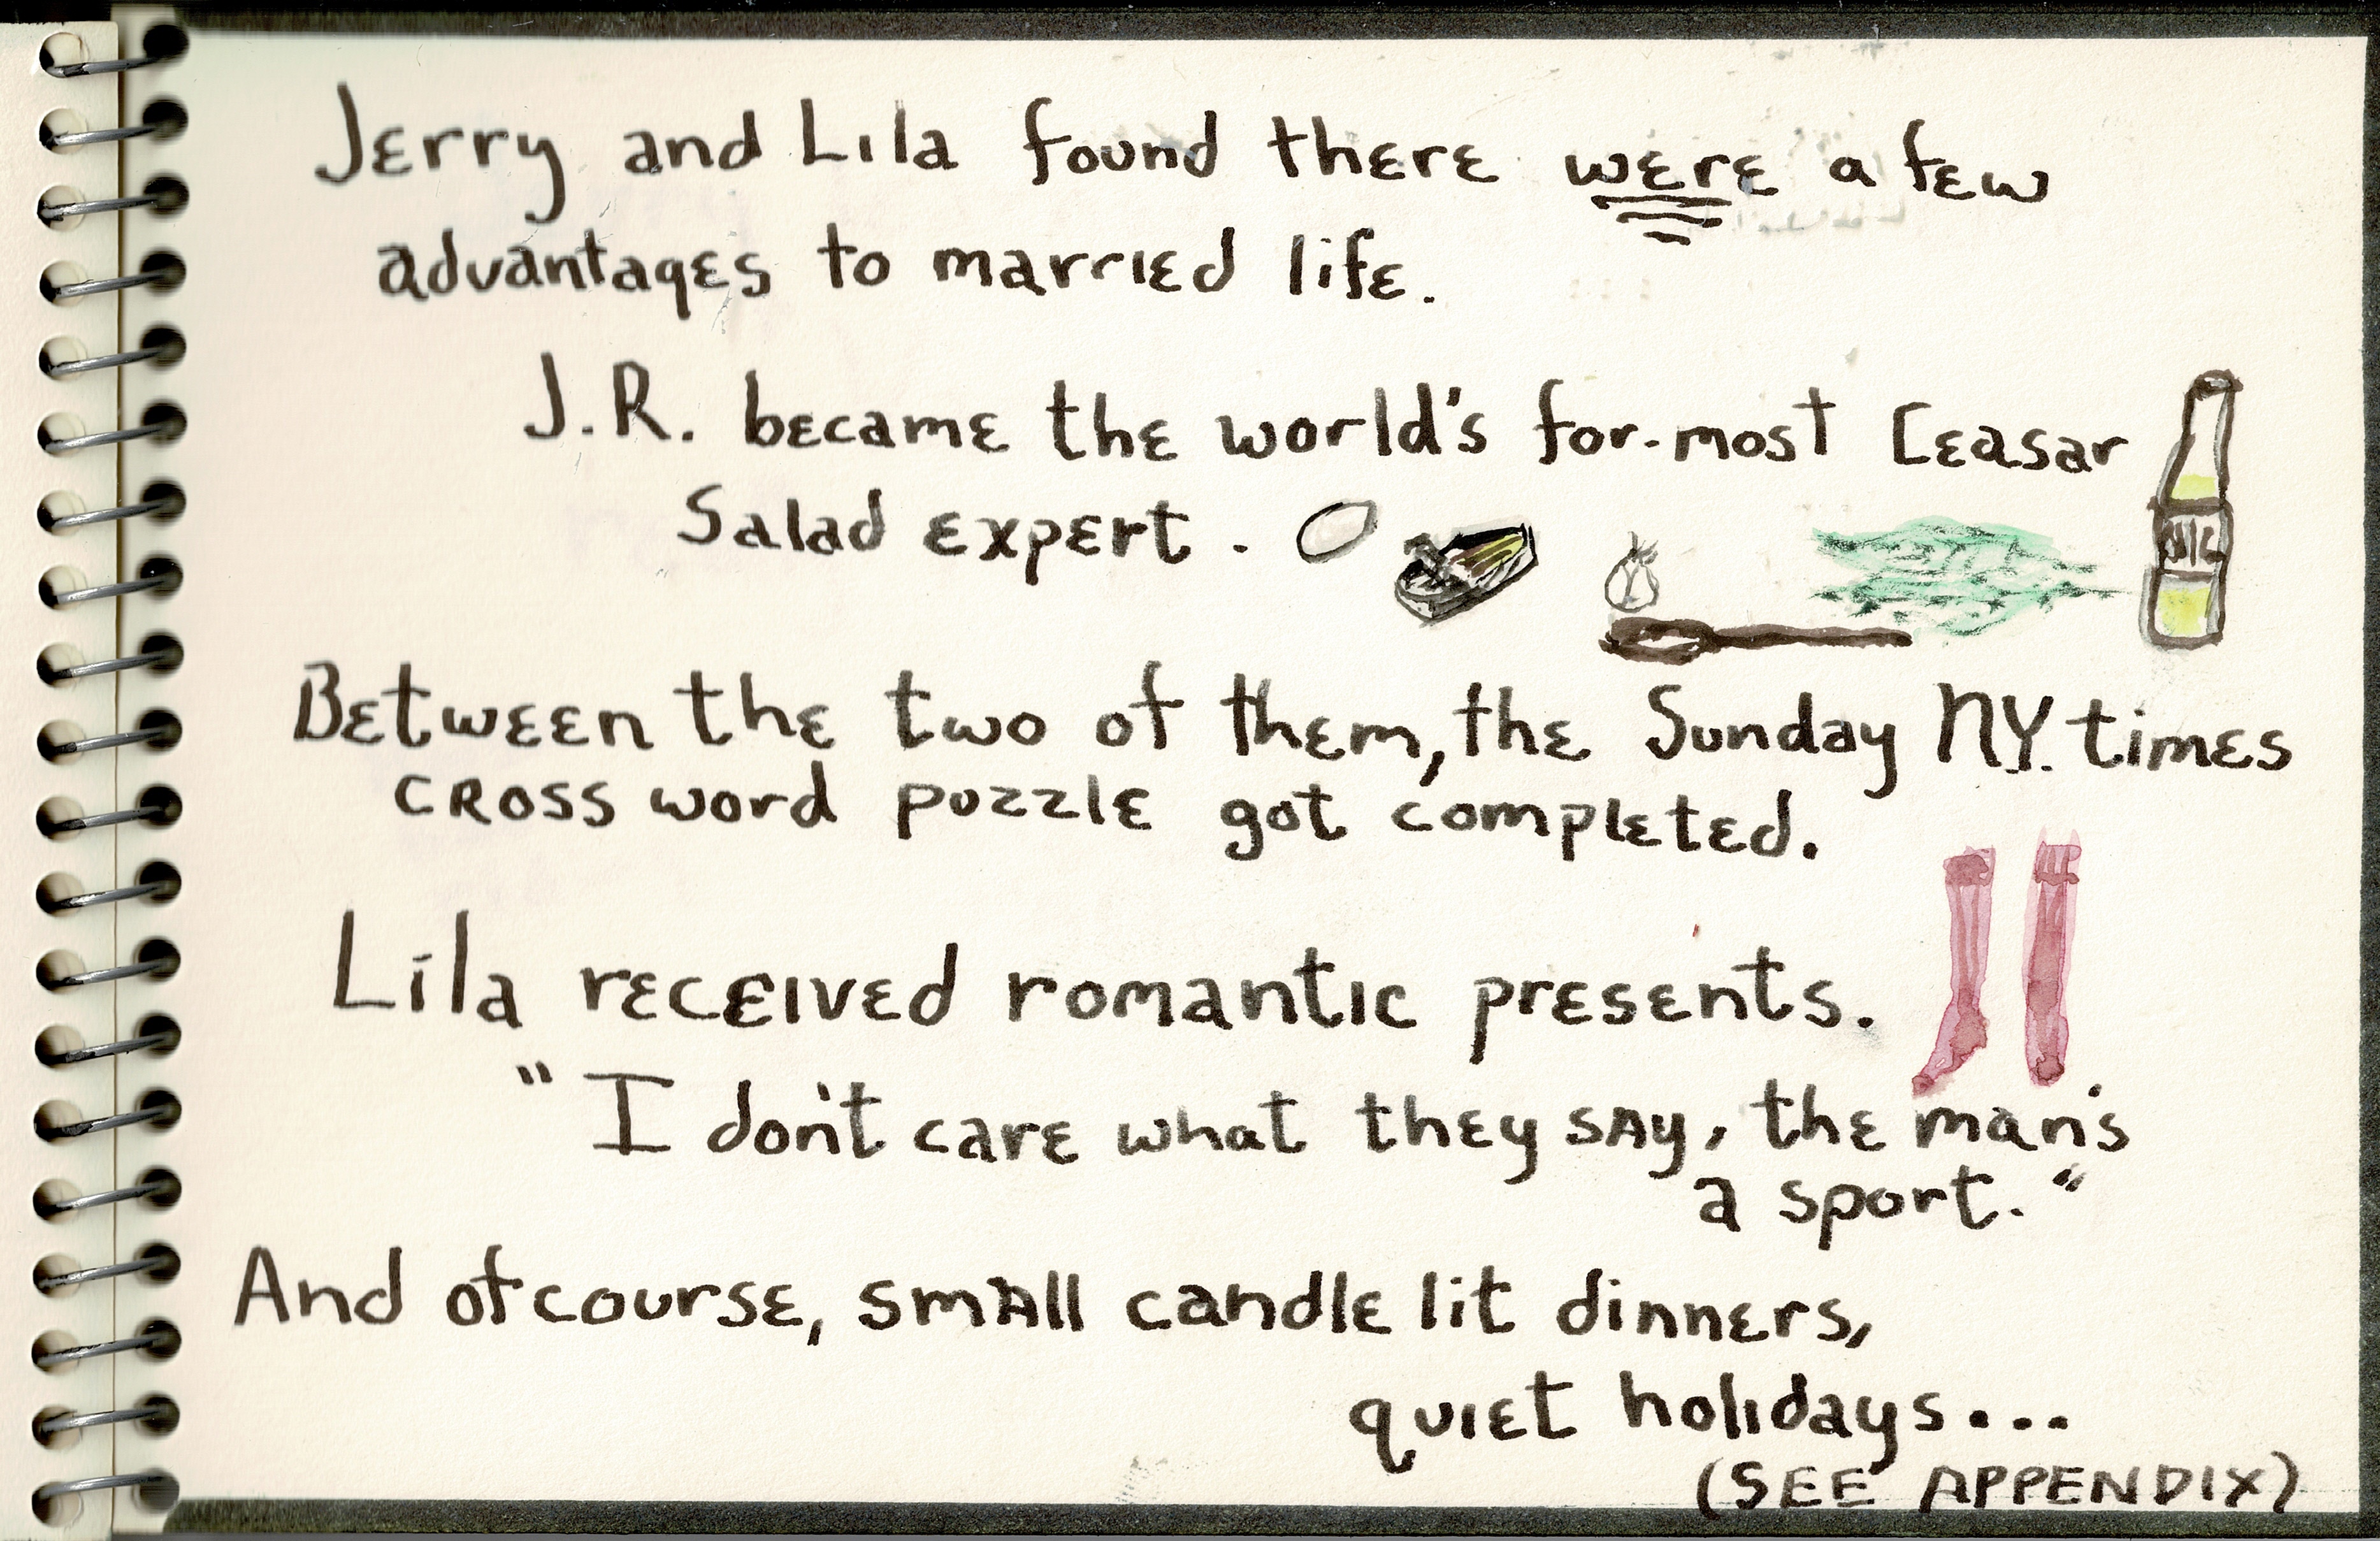 Jerry and Lila found there were a few
advantages to married life.
J.R. became the world's for-most Ceasar
Salad expert.
Between the two of them, the Sunday N.Y. times
cross word puzzle got completed.
Lila received romantic presents.
"I don't care what they say, the man's
a sport."
And of course, small candle lit dinners,
quiet holidays...
(SEE APPENDIX)